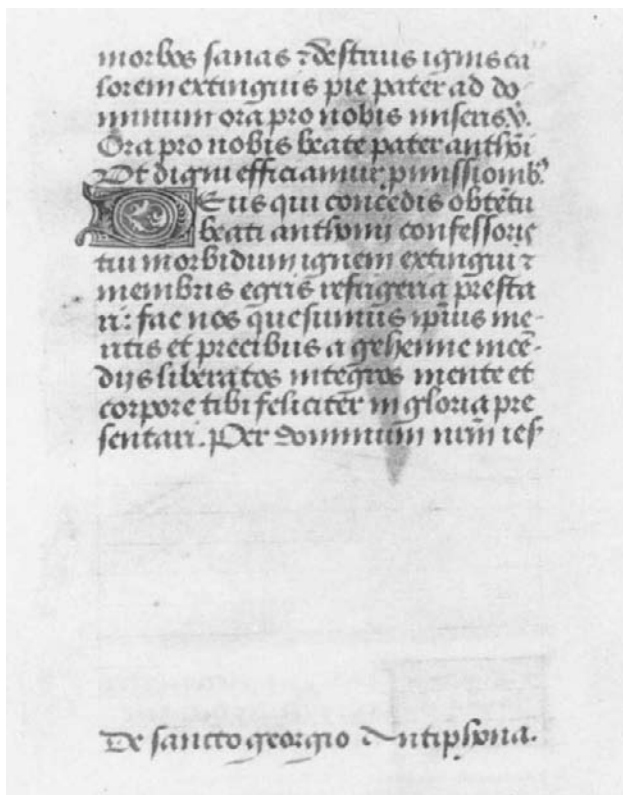 morbos sanas ⁊ destruis ignis ca
lorem extinguis pie pater ad do
minum ora pro nobis miseris. ℣.
Ora pro nobis beate pater anthōi
Vt digni efficiamur pmissiomb⁹
Deus qui concedis obtētu
beati anthonii confessoris
tui morbidum ignem extingui ⁊
membris egris refrigeria p̄esta
ri: fac nos q̄uesumus ip̄ius me-
ritis et precibus a gehenne incē-
diis liberatos integros mente et
corpore tibi feliciter in gloria pre
sentari. Per dominum nr̄m ies
De sancto georgio Antiphona.